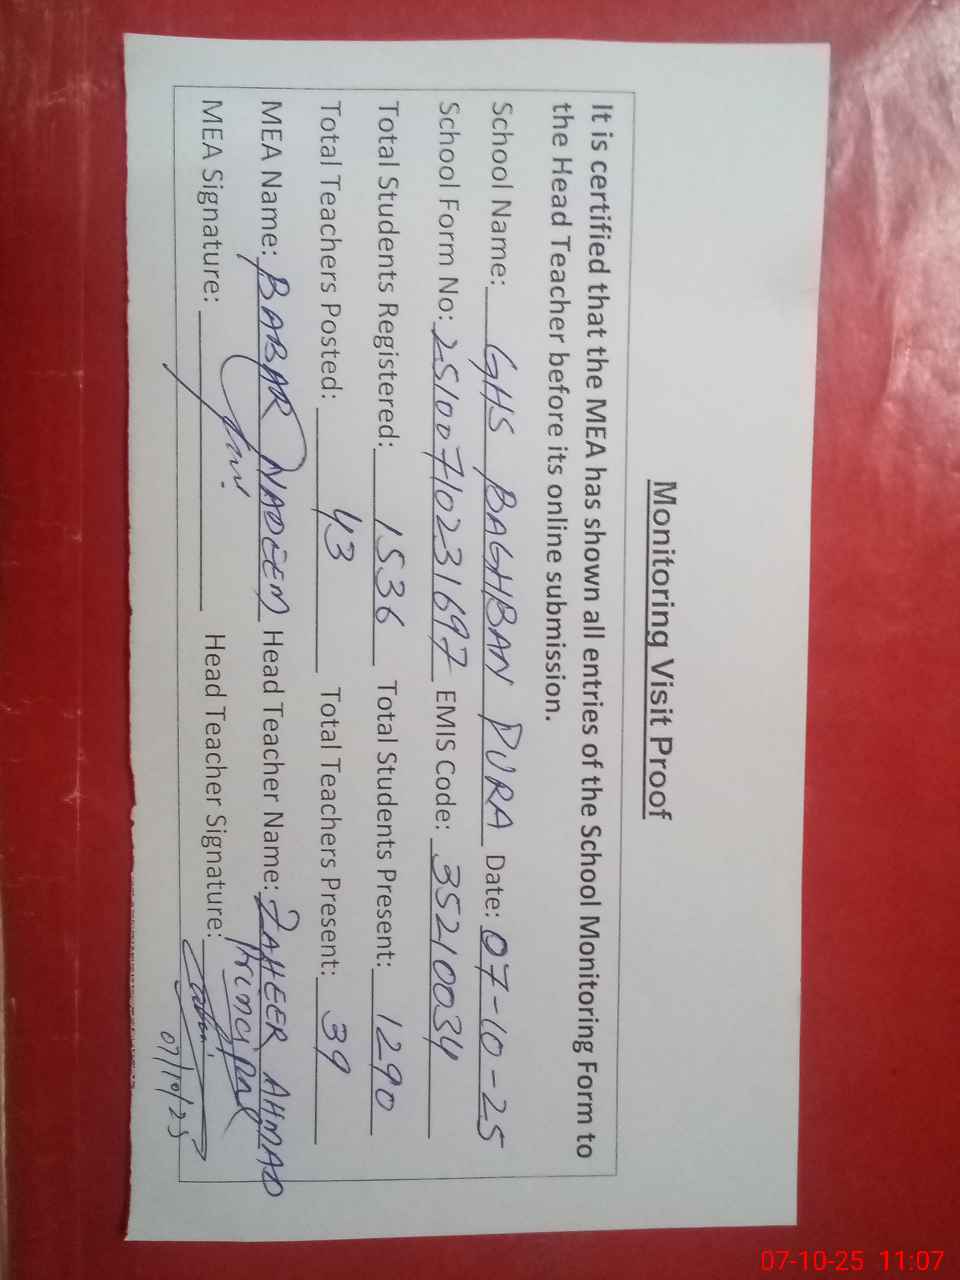 Monitoring Visit Proof
It is certified that the MEA has shown all entries of the School Monitoring Form to
the Head Teacher before its online submission.
School Name: GHS BAGHBAN PURA Date: 07-10-25
School Form No: 25100710231697 EMIS Code: 35210034
Total Students Registered: 1536 Total Students Present: 1290
Total Teachers Posted: 43 Total Teachers Present: 39
MEA Name: BABAR NADEEM Head Teacher Name: ZAHEER AHMAD
Principal
MEA Signature: Head Teacher Signature:
07/10/25
07-10-25 11:07